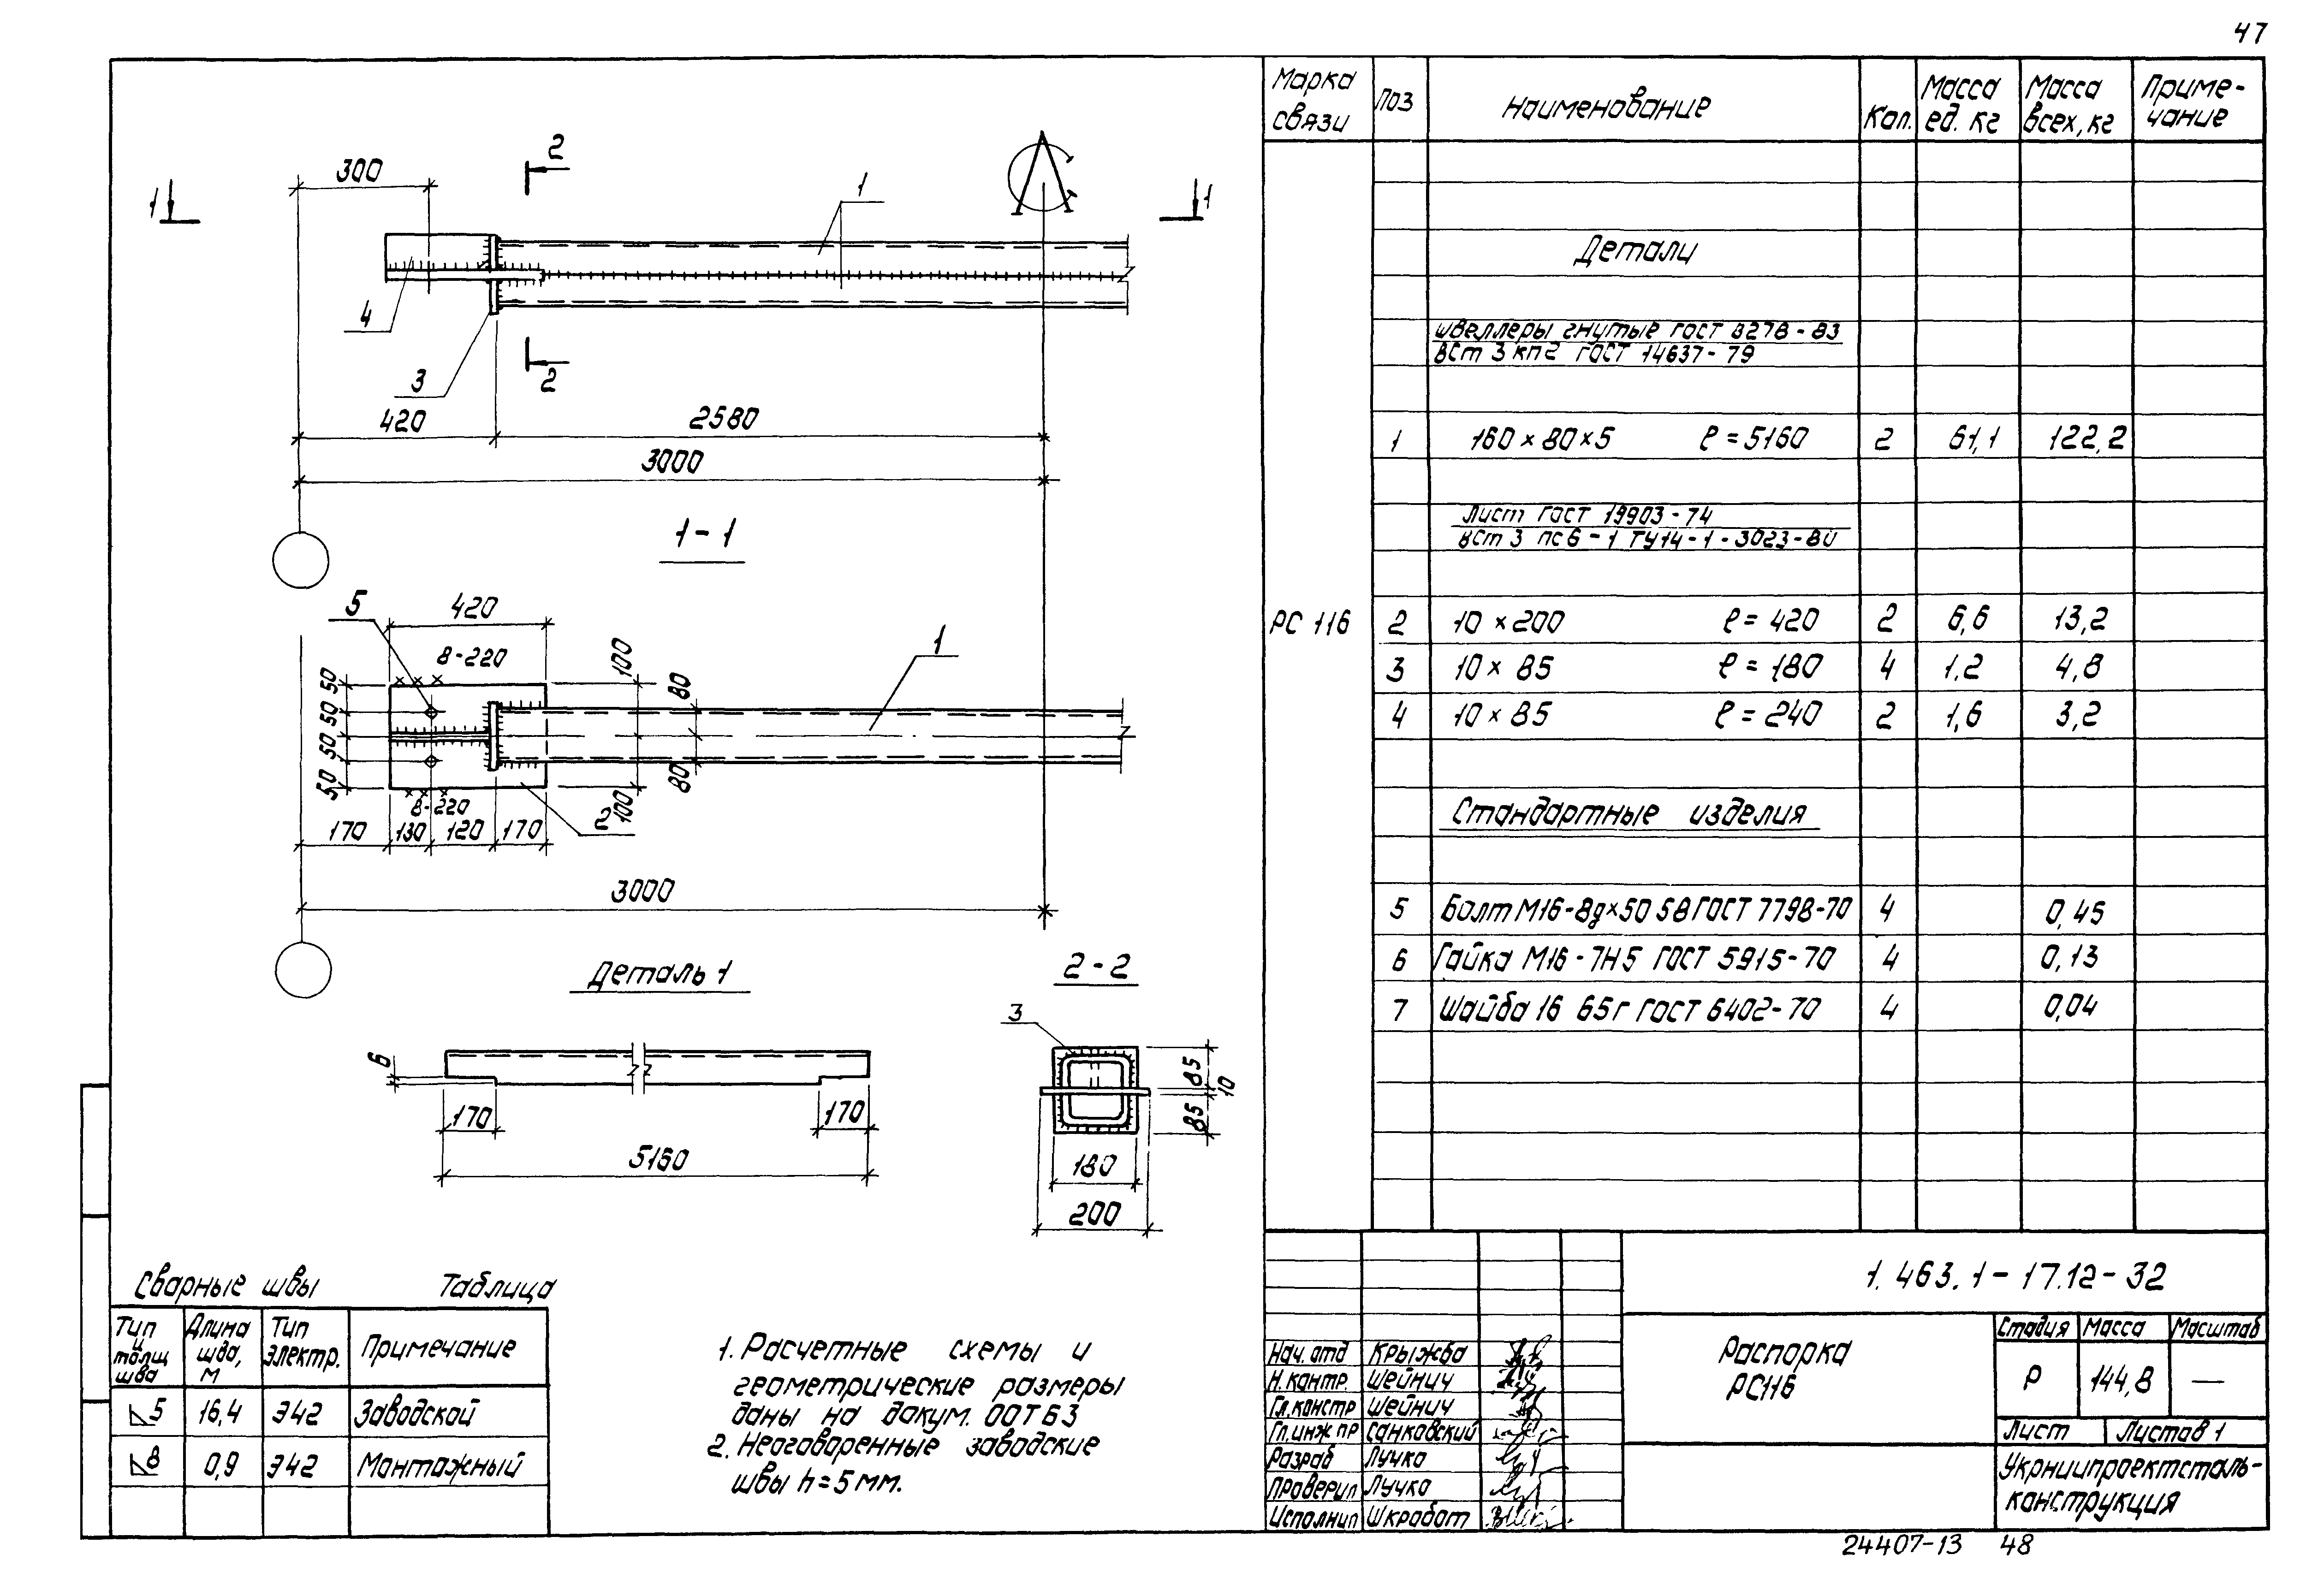 47
Марка связи	Поз	Наименование	Кол.	Масса ед. кг	Масса всех, кг	Приме-чание
Детали
Швеллеры гнутые ГОСТ 8278-83
ВСт 3 кп2 ГОСТ 14637-79
1	160×80×5	ℓ=5160	2	61,1	122,2
Лист ГОСТ 19903-74
ВСт 3 пс6-1 ТУ14-1-3023-80
РС 116	2	10×200	ℓ=420	2	6,6	13,2
3	10×85	ℓ=180	4	1,2	4,8
4	10×85	ℓ=240	2	1,6	3,2
Стандартные изделия
5	Болт М16-8g×50 58 ГОСТ 7798-70	4	0,45
6	Гайка М16-7Н5 ГОСТ 5915-70	4	0,13
7	Шайба 16 65Г ГОСТ 6402-70	4	0,04
300
2
1
1
1
4
3
2
420
2580
3000
1-1
5
420
8-220
1
50
50
50
50
100
80
80
100
8-220
2
170
130
120
170
3000
Деталь 1
6
170
170
5160
2-2
3
85
10
85
180
200
Сварные швы Таблица
Тип и толщ шва	Длина шва, м	Тип электр.	Примечание
5	16,4	Э42	Заводской
8	0,9	Э42	Монтажный
1. Расчетные схемы и
геометрические размеры
даны на докум. 00ТБ3
2. Неоговоренные заводские
швы h=5мм.
1.463.1-17.12-32
Нач. отд	Крыжба
Н. контр.	Шейнич
Гл. констр	Шейнич
Гл. инж пр	Санковский
Разраб	Лучко
Проверил	Лучко
Исполнил	Шкработ
Распорка
РС116
Стадия	Масса	Масштаб
Р	144,8	—
Лист	Листов 1
Укрниипроектсталь-
конструкция
24407-13 48